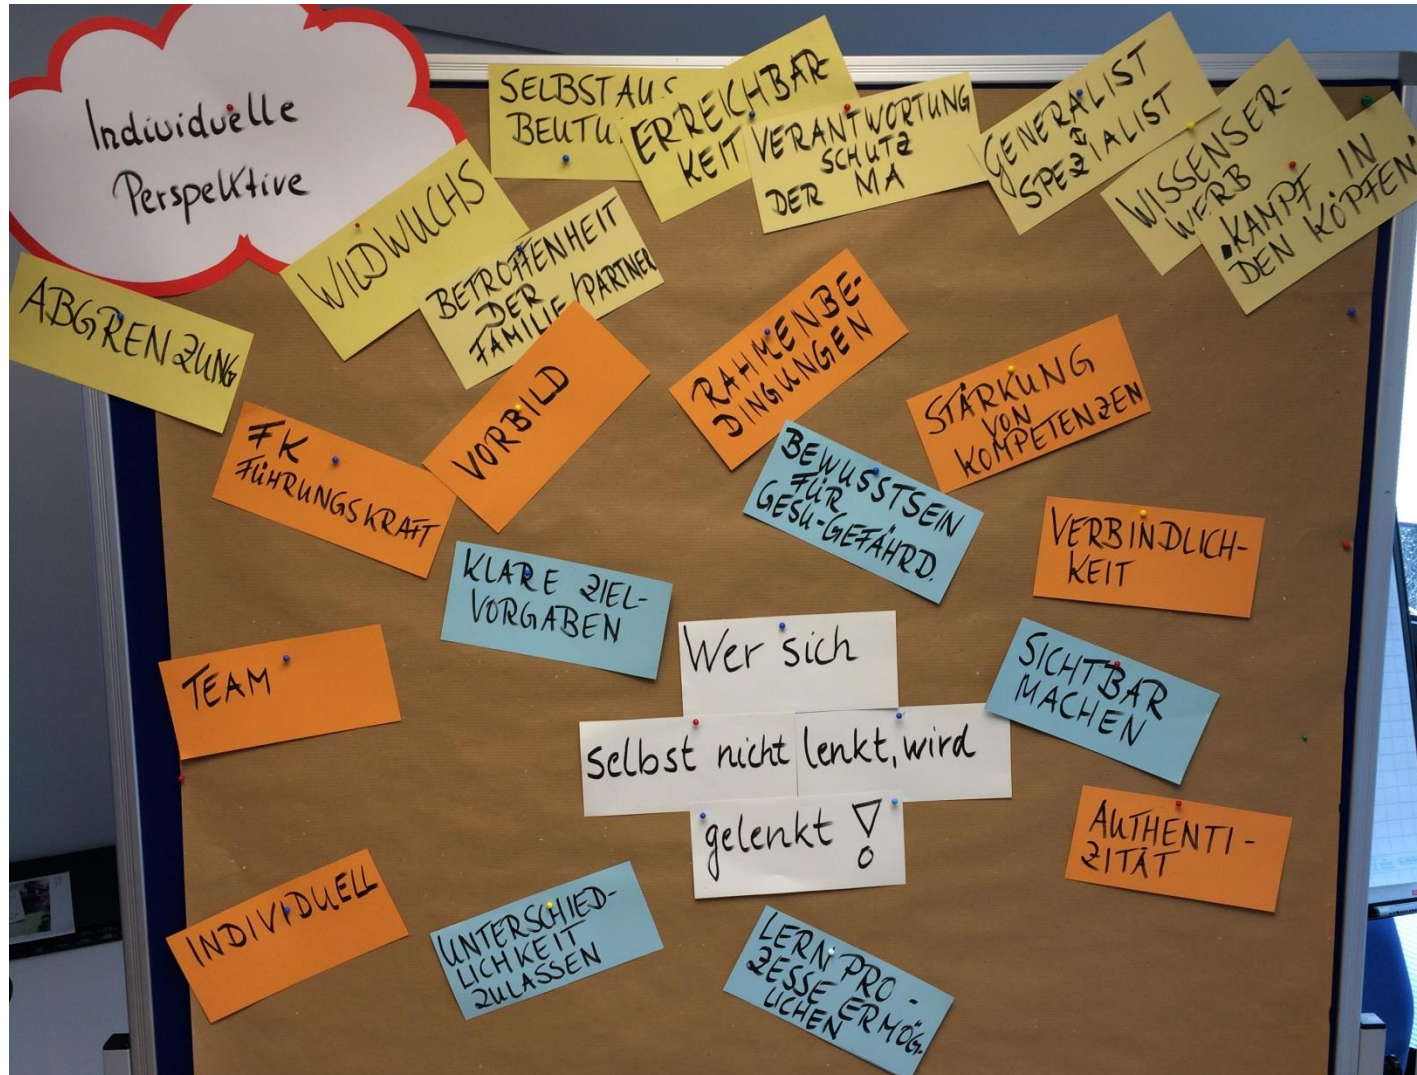 Individuelle
Perspektive
SELBSTAUS
BEUTU
ERREICHBAR-
KEIT
VERANTWORTUNG
SCHUTZ
DER MA
GENERALIST
↕
SPEZIALIST
WISSENSER-
WERB
"KAMPF IN
DEN KÖPFEN"
ABGRENZUNG
WILDWUCHS
BETROFFENHEIT
DER
FAMILIE/PARTNER
FK
FÜHRUNGSKRAFT
VORBILD
RAHMENBE-
DINGUNGEN
STÄRKUNG
VON
KOMPETENZEN
BEWUSSTSEIN
FÜR
GESU-GEFÄHRD.
VERBINDLICH-
KEIT
KLARE ZIEL-
VORGABEN
TEAM
Wer sich
selbst nicht lenkt, wird
gelenkt !
SICHTBAR
MACHEN
AUTHENTI-
ZITÄT
INDIVIDUELL
UNTERSCHIED-
LICHKEIT
ZULASSEN
LERNPRO-
ZESSE ERMÖG-
LICHEN